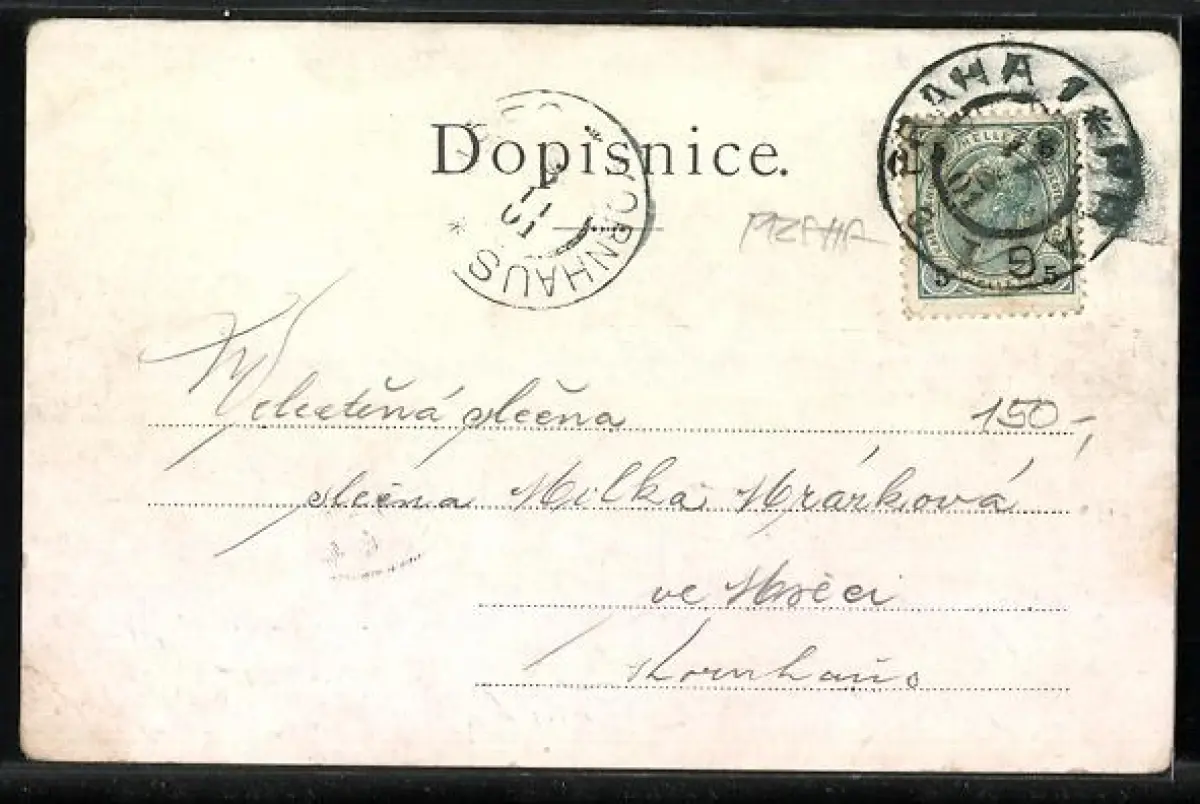 Dopisnice.
PRAHA 1 * PRAG 1
KORNHAUS *
HELLER
5 5
PRAHA
Velectěná slečna 150,-
slečna Milka Mrárková
ve Mšeci
Kornhaus